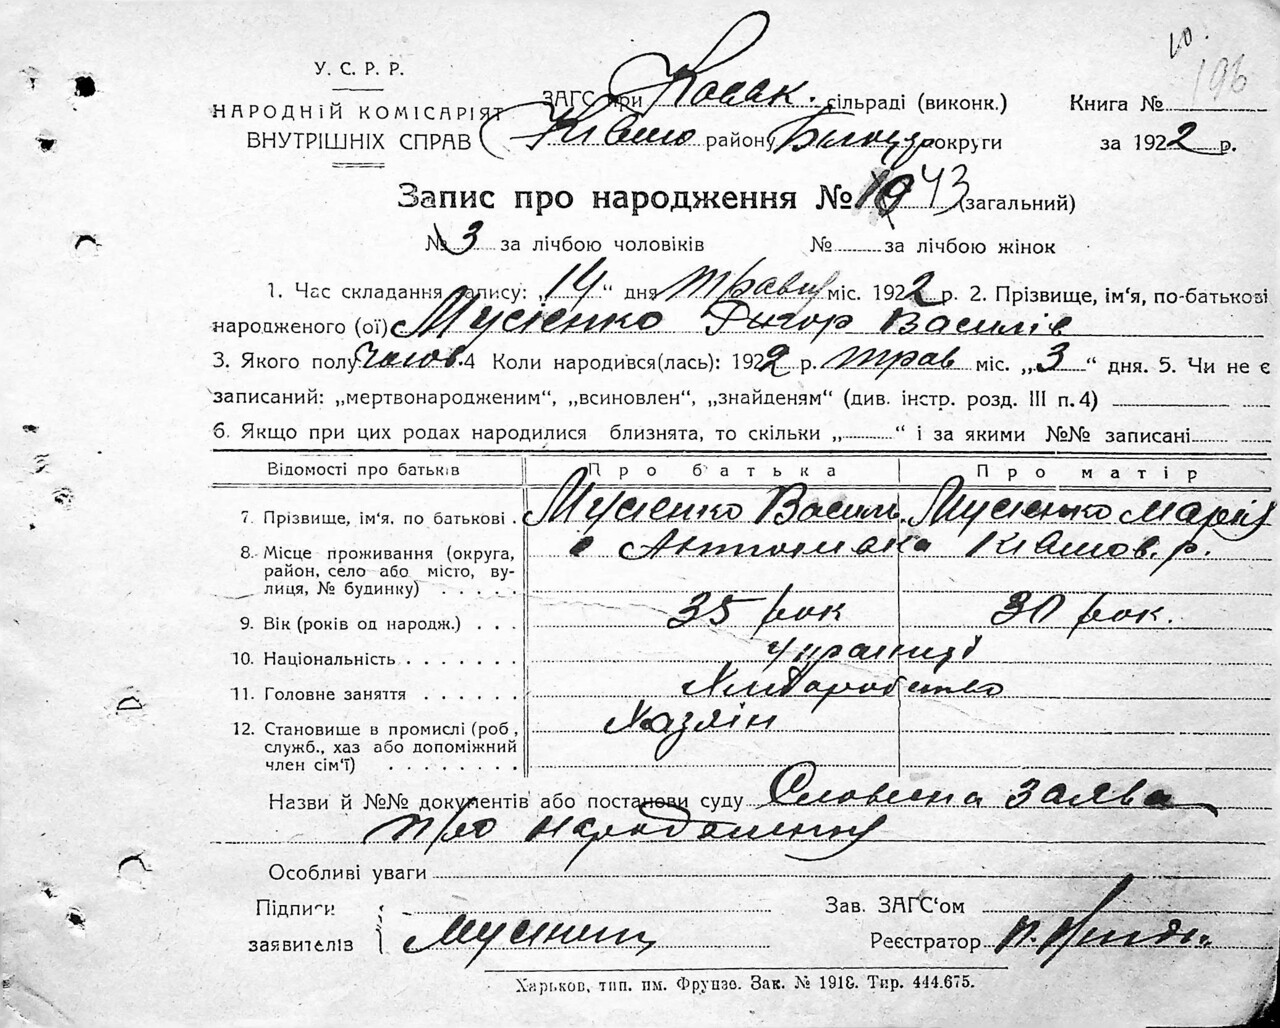 10.
196
У. С. Р. Р.
НАРОДНІЙ КОМІСАРІЯТ
ВНУТРІШНІХ СПРАВ
ЗАГС при Козак. сільраді (виконк.)
району округи
Книга №
за 1922 р.
Запис про народження № 43 (загальний)
№ 3 за лічбою чоловіків № за лічбою жінок
1. Час складання запису: „14“ дня травня міс. 1922 р. 2. Прізвище, ім'я, по-батькові
народженого (ої) Мусіенко Григор Василів
3. Якого полу чолов. 4 Коли народився(лась): 1922 р. трав міс. „3“ дня. 5. Чи не є
записаний: „мертвонародженим“, „всиновлен“, „знайденям“ (див. інстр. розд. III п. 4)
6. Якщо при цих родах народилися близнята, то скільки „ “ і за якими №№ записані
Відомості про батьків Про батька Про матір
7. Прізвище, ім'я. по батькові. Мусіенко Василь. Мусіенко Марія
8. Місце проживання (округа, с Антонівка р.
район, село або місто, ву-
лиця, № будинку)
9. Вік (років од народж.) 35 рок 30 рок.
10. Національність українці
11. Головне заняття Хліборобство
12. Становище в промислі (роб., Хазяін
служб., хаз або допоміжний
член сім'ї)
Назви й №№ документів або постанови суду Словесна заява
про народження
Особливі уваги
Підписи
заявителів
Зав. ЗАГС'ом
Реєстратор
Харьков, тип. им. Фрунзе. Зак. № 1918. Тир. 444.675.